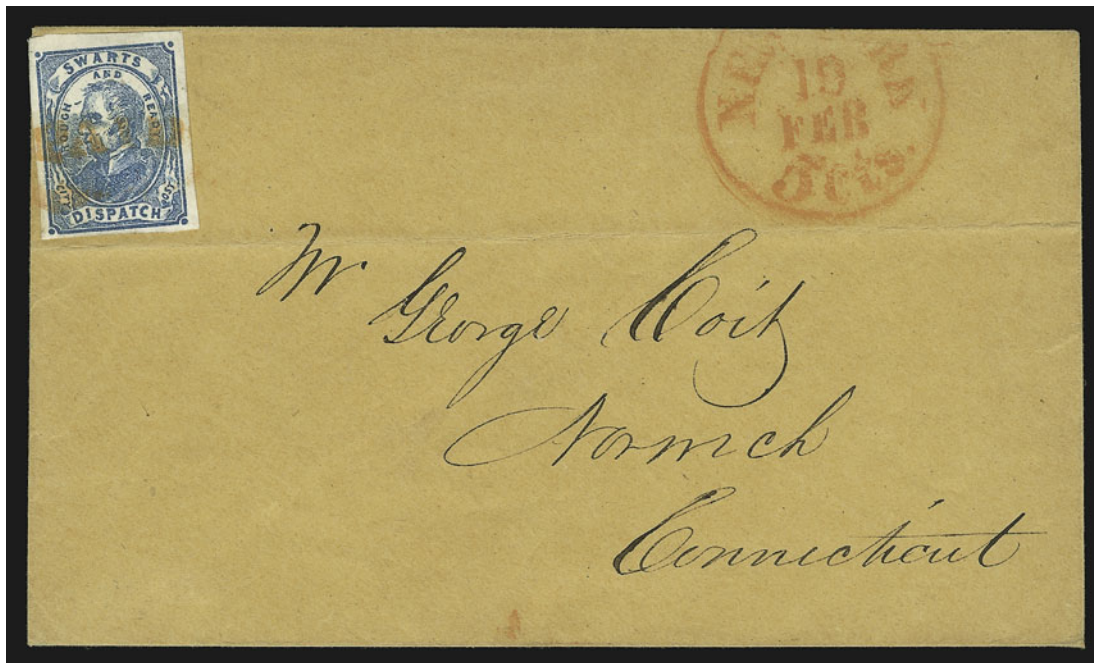 SWARTS
AND
ROUGH READY
CITY POST
DISPATCH
19
FEB
5 cts.
Mr
George Coit
Norwich
Connecticut